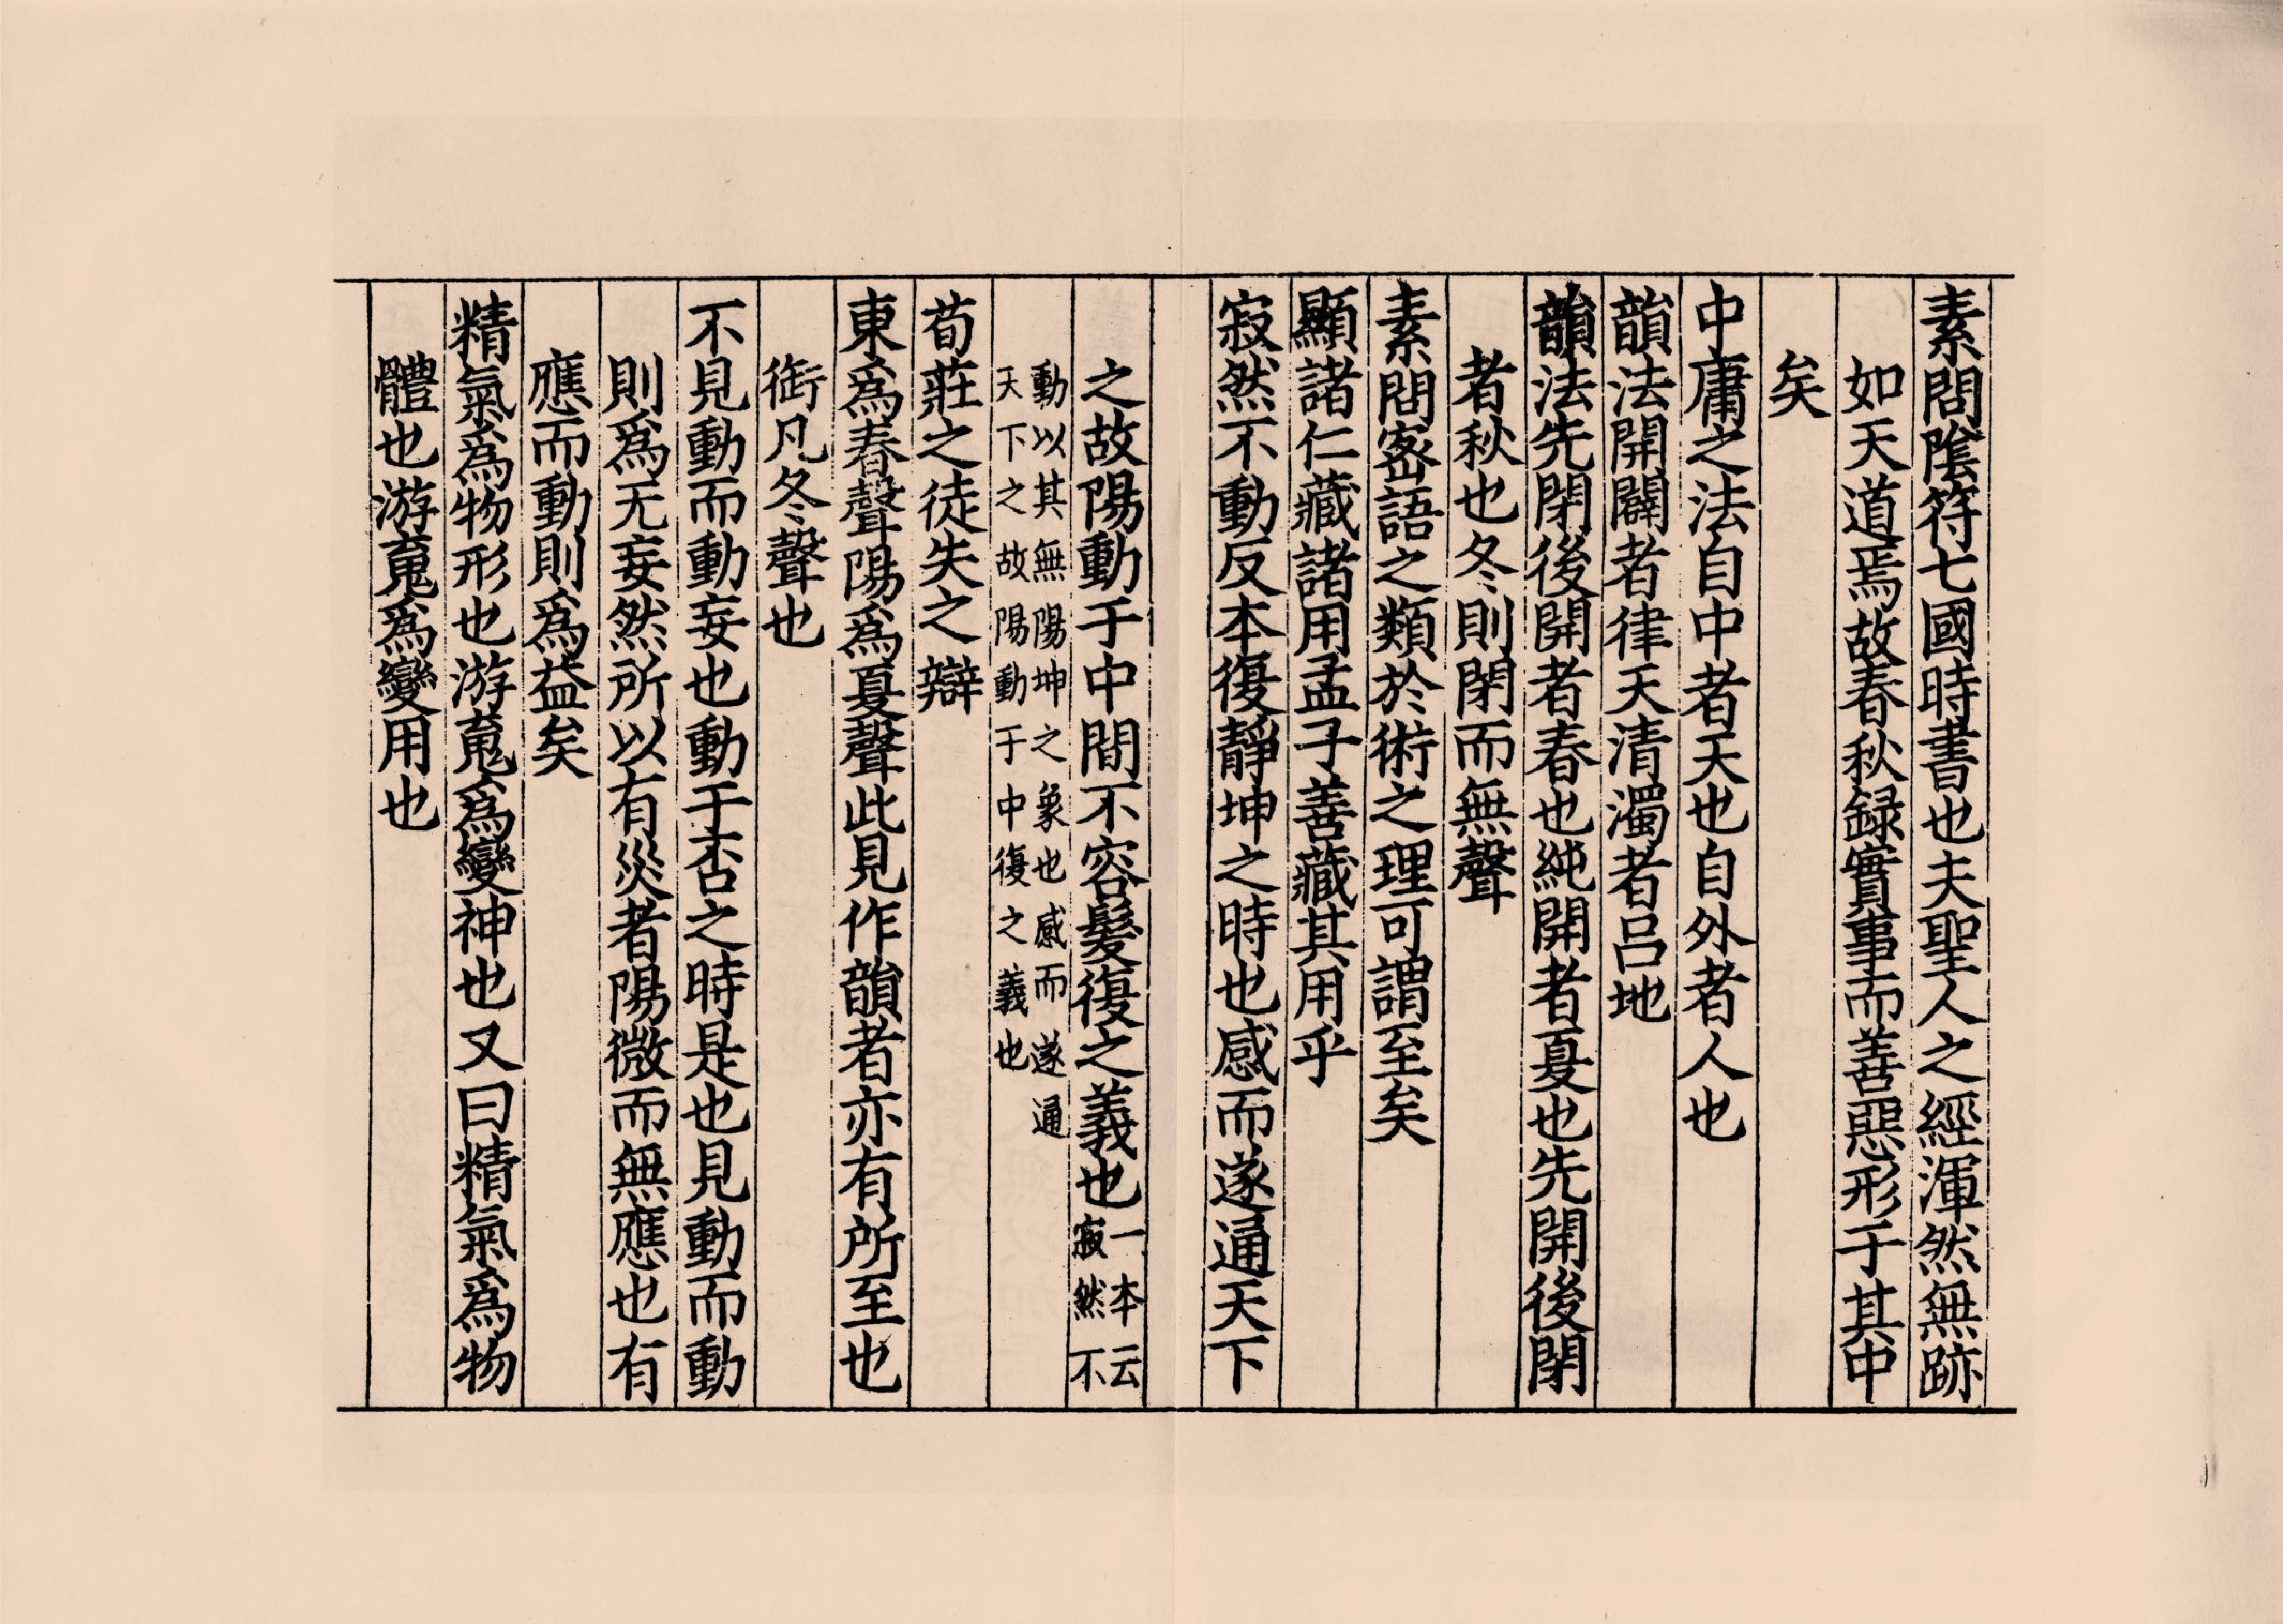 素問隂符七國時書也夫聖人之經渾然無跡
如天道焉故春秋録實事而善惡形于其中
矣
中庸之法自中者天也自外者人也
韻法開闢者律天清濁者吕地
韻法先閉後開者春也純開者夏也先開後閉
者秋也冬則閉而無聲
素問宻語之類於術之理可謂至矣
顯諸仁藏諸用孟子善藏其用乎
寂然不動反本復靜坤之時也感而遂通天下
之故陽動于中間不容髮復之義也一本云
寂然不
動以其無陽坤之象也感而遂通
天下之故陽動于中復之義也
荀莊之徒失之辯
東爲春聲陽爲夏聲此見作韻者亦有所至也
銜凡冬聲也
不見動而動妄也動于否之時是也見動而動
則爲无妄然所以有災者陽微而無應也有
應而動則爲益矣
精氣爲物形也游䰟爲變神也又曰精氣爲物
體也游䰟爲變用也